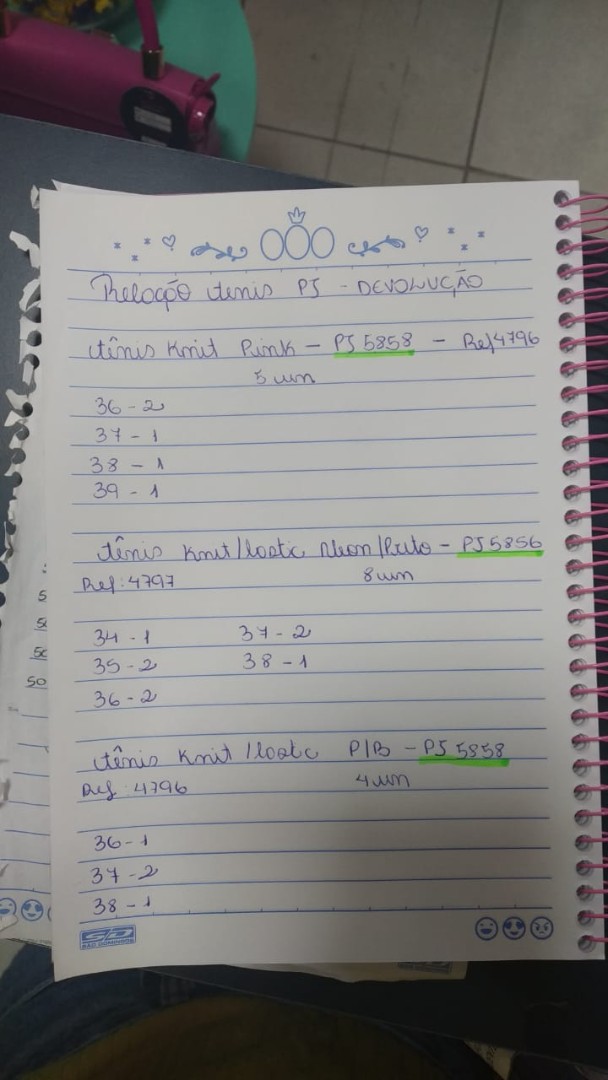 Relação tenis PJ - DEVOLUÇÃO
tênis Knit Pink - PJ 5858 - Ref 4796
5 un
36 - 2
37 - 1
38 - 1
39 - 1
tênis Knit/ Neon/Preto - PJ 5856
Ref: 4797 8 un
34 - 1 37 - 2
35 - 2 38 - 1
36 - 2
tênis Knit / P/B - PJ 5858
Ref: 4796 4 un
36 - 1
37 - 2
38 - 1
SD
SÃO DOMINGOS
5
50